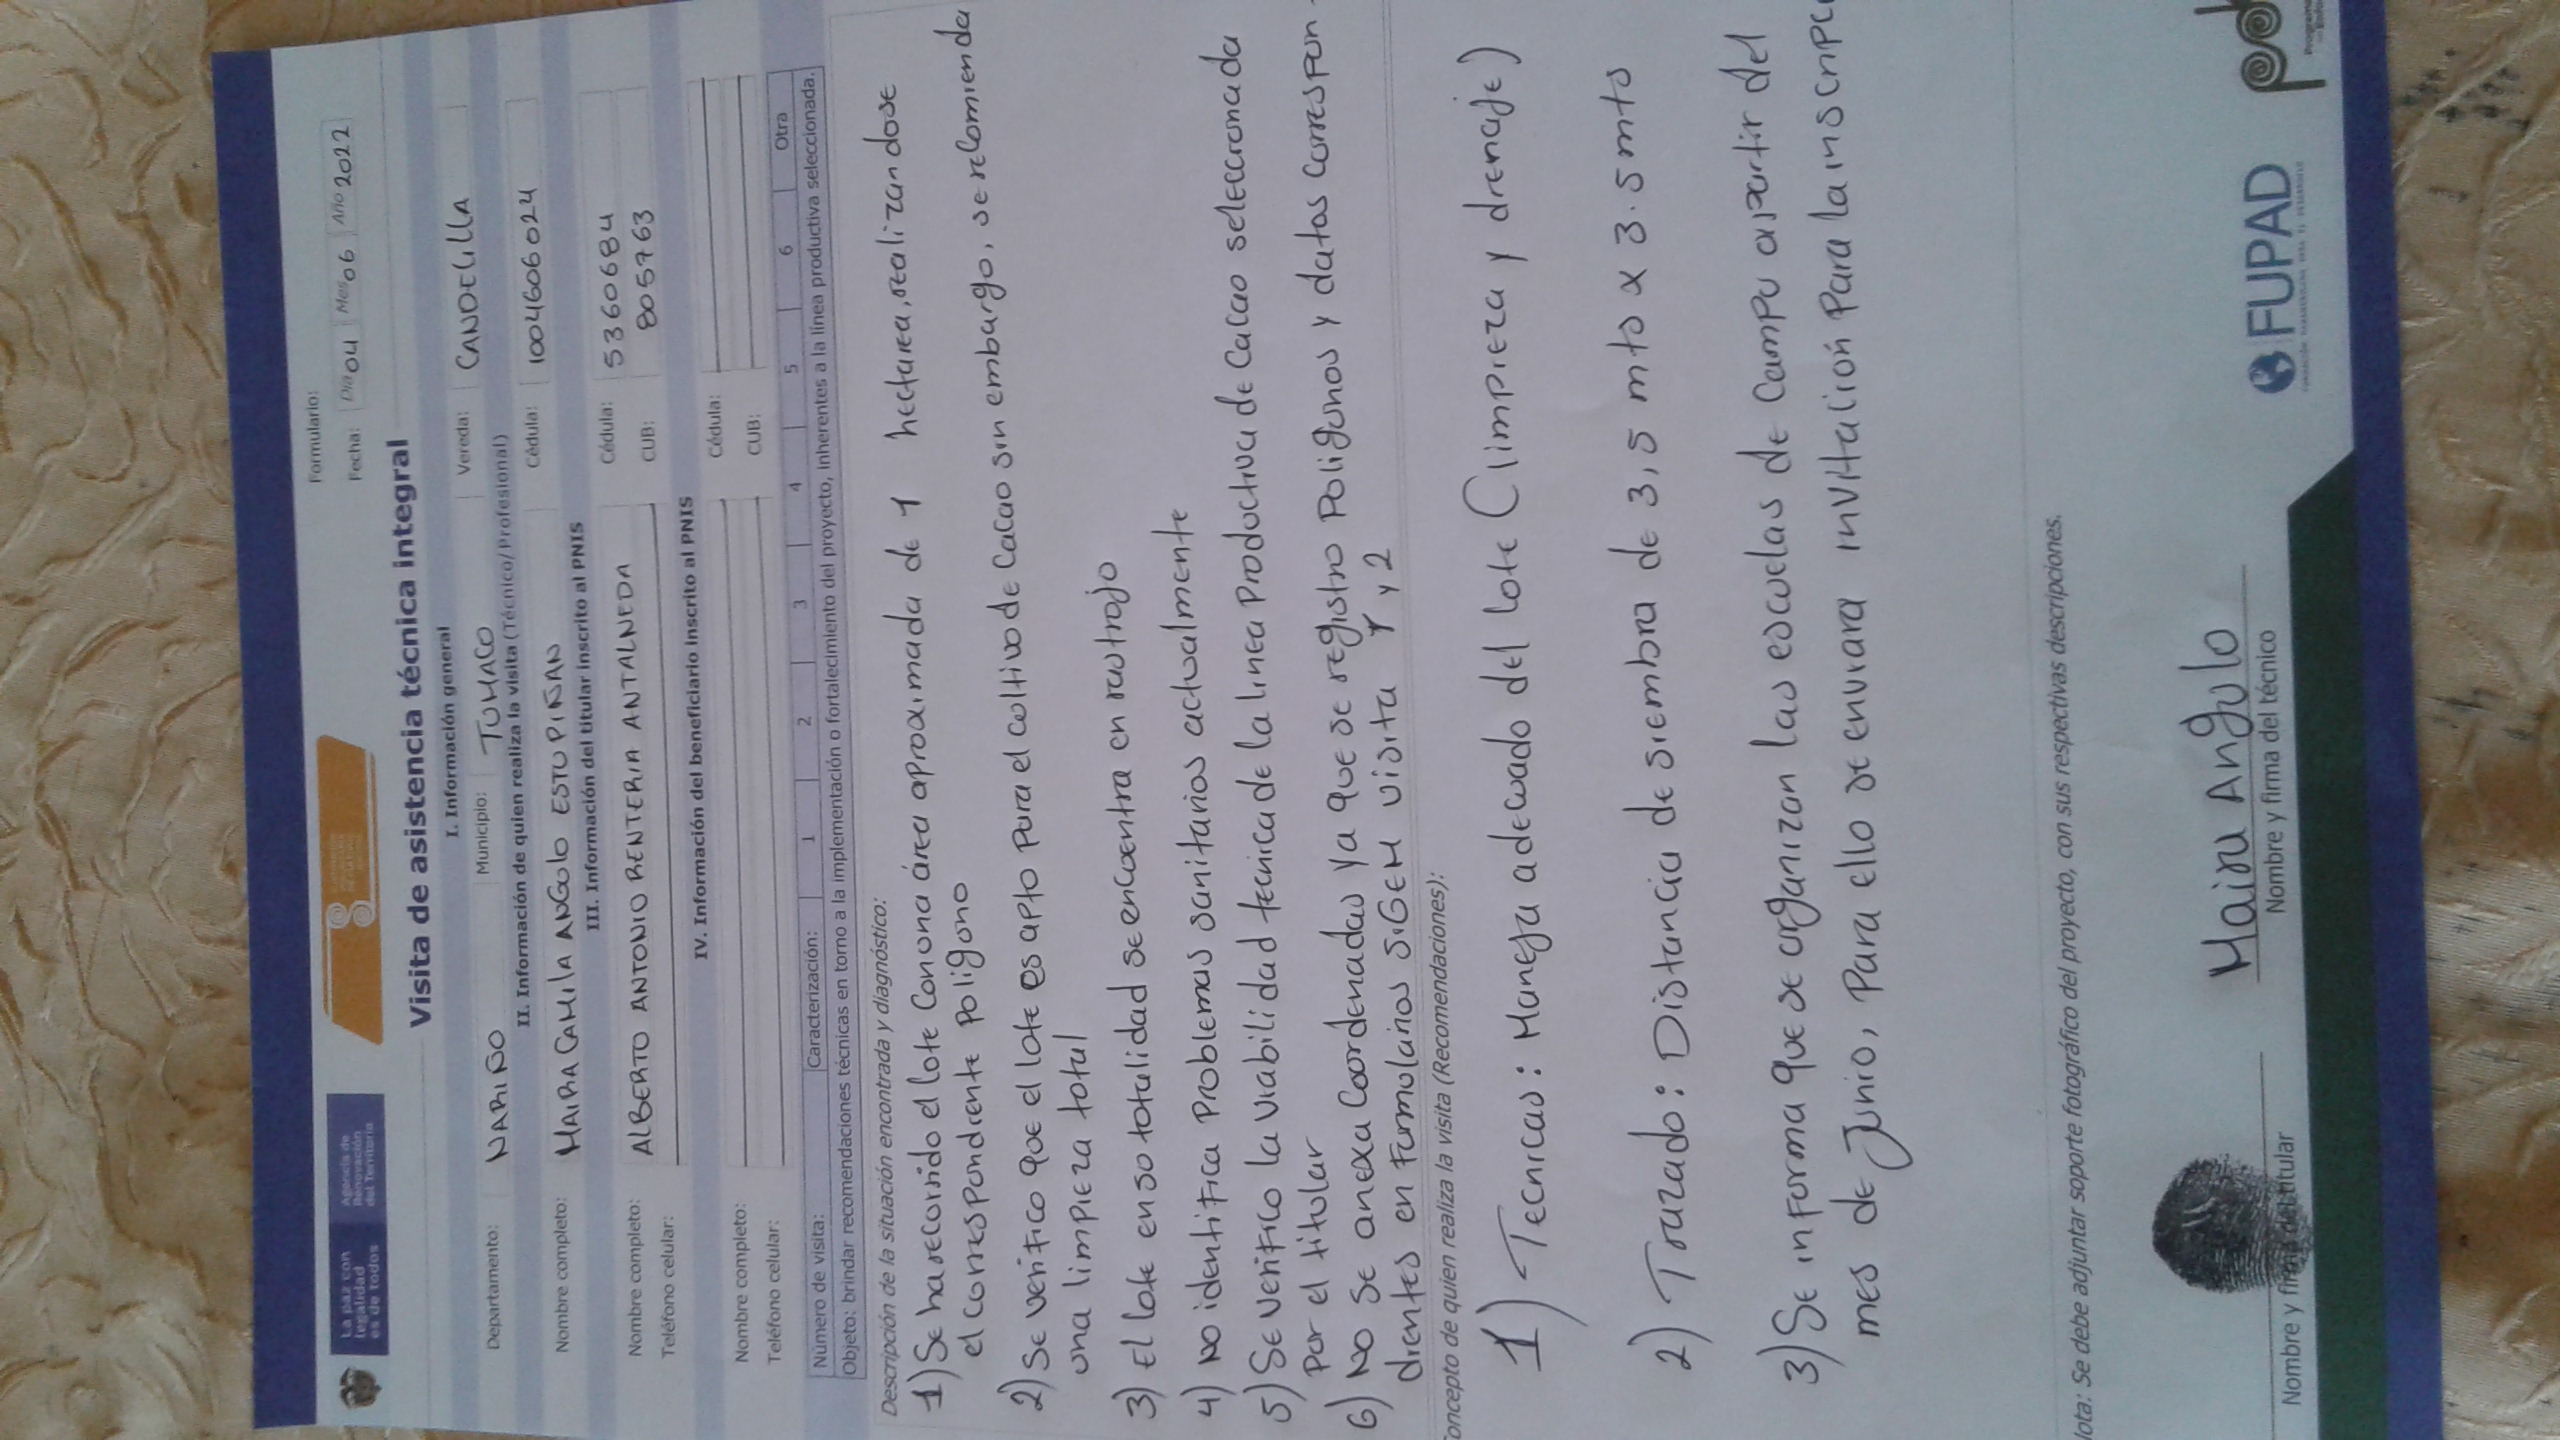 La paz con
legalidad
es de todos
Agencia de
Renovación
del Territorio
Formulario:
Fecha: Día 04 Mes 06 Año 2022
Visita de asistencia técnica integral
I. Información general
Departamento: NARIÑO Municipio: TUMACO Vereda: CANDELILLA
II. Información de quien realiza la visita (Técnico/Profesional)
Nombre completo: MAIRA CAMILA ANGULO ESTUPIÑAN Cédula: 1004606024
III. Información del titular inscrito al PNIS
Nombre completo: ALBERTO ANTONIO RENTERIA ANTALNEDA Cédula: 5360684
Teléfono celular: CUB: 8057763
IV. Información del beneficiario inscrito al PNIS
Nombre completo: Cédula:
Teléfono celular: CUB:
Número de visita: Caracterización: 1 2 3 4 5 6 Otra
Objeto: brindar recomendaciones técnicas en torno a la implementación o fortalecimiento del proyecto, inherentes a la línea productiva seleccionada.
Descripción de la situación encontrada y diagnóstico:
1) Se ha recorrido el lote con una área aproximada de 1 hectarea, realizandose
el correspondiente poligono
2) Se verifico que el lote es apto para el cultivo de cacao sin embargo, se recomienda
una limpieza total
3) El lote en so totalidad se encuentra en rastrojo
4) No identifica problemas sanitarios actualmente
5) Se verifico la viabilidad tecnica de la linea productiva de cacao seleccionada
por el titular
6) No se anexa coordenadas ya que se registro poligonos y datos correspon-
dientes en formularios SIGEM visita 1 y 2
oncepto de quien realiza la visita (Recomendaciones):
1) Tecnicas: Maneja adecuado del lote (limpieza y drenaje)
2) Trazado: Distancia de siembra de 3,5 mto x 3.5 mto
3) Se informa que se organizan las escuelas de campo a partir del
mes de Junio, para ello se enviara invitación para la inscripc
lota: Se debe adjuntar soporte fotográfico del proyecto, con sus respectivas descripciones.
Maira Angulo
Nombre y firma del titular Nombre y firma del técnico
FUPAD